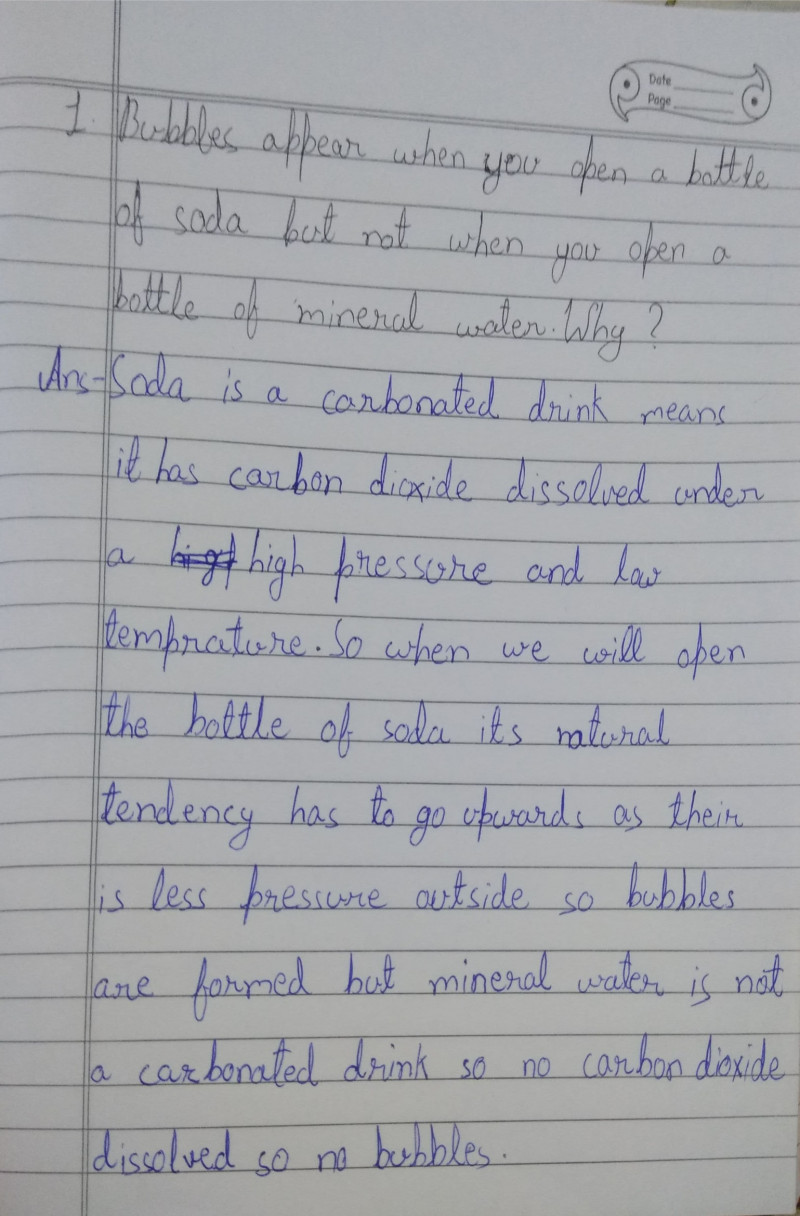 Date
Page
1. Bubbles appear when you open a bottle
of soda but not when you open a
bottle of mineral water. Why?
Ans-Soda is a carbonated drink means
it has carbon dioxide dissolved under
a high pressure and low
temprature. So when we will open
the bottle of soda its natural
tendency has to go upwards as their
is less pressure outside so bubbles
are formed but mineral water is not
a carbonated drink so no carbon dioxide
dissolved so no bubbles.